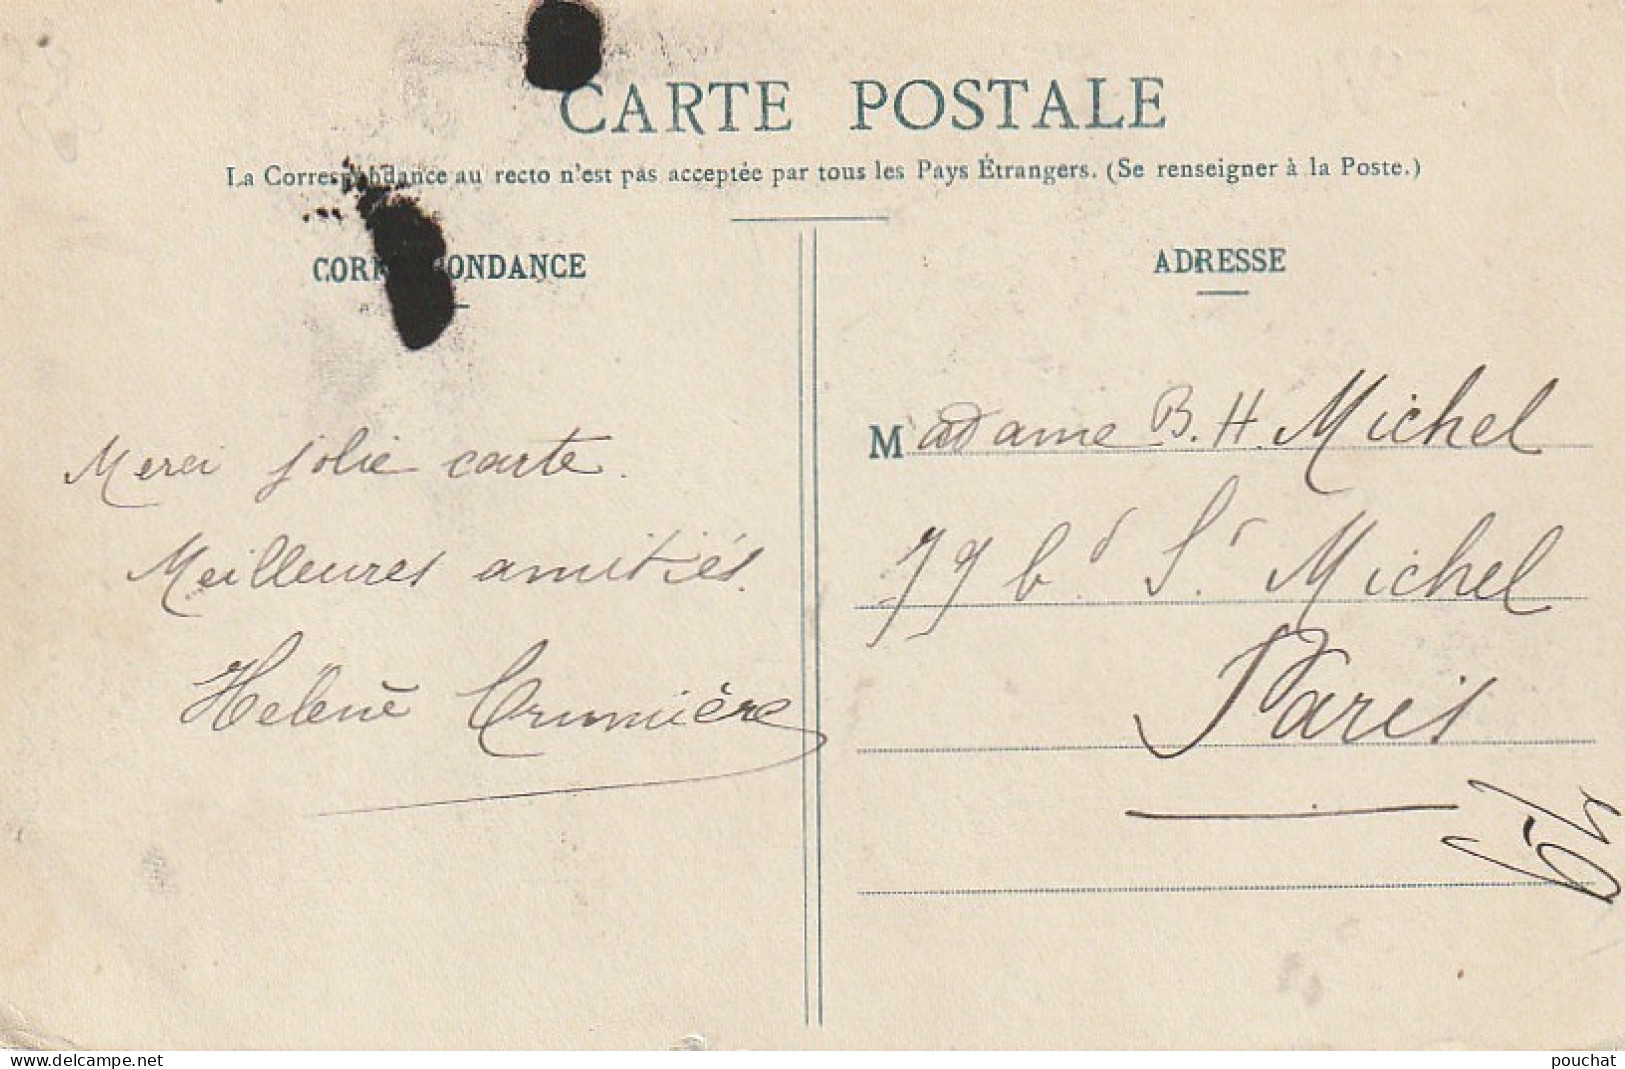 CARTE POSTALE
La Correspondance au recto n'est pas acceptée par tous les Pays Étrangers. (Se renseigner à la Poste.)
CORRESPONDANCE
Merci jolie carte.
Meilleures amitiés.
Hélène
ADRESSE
Madame B. H. Michel
79 bd St Michel
Paris
www.delcampe.net
pouchat